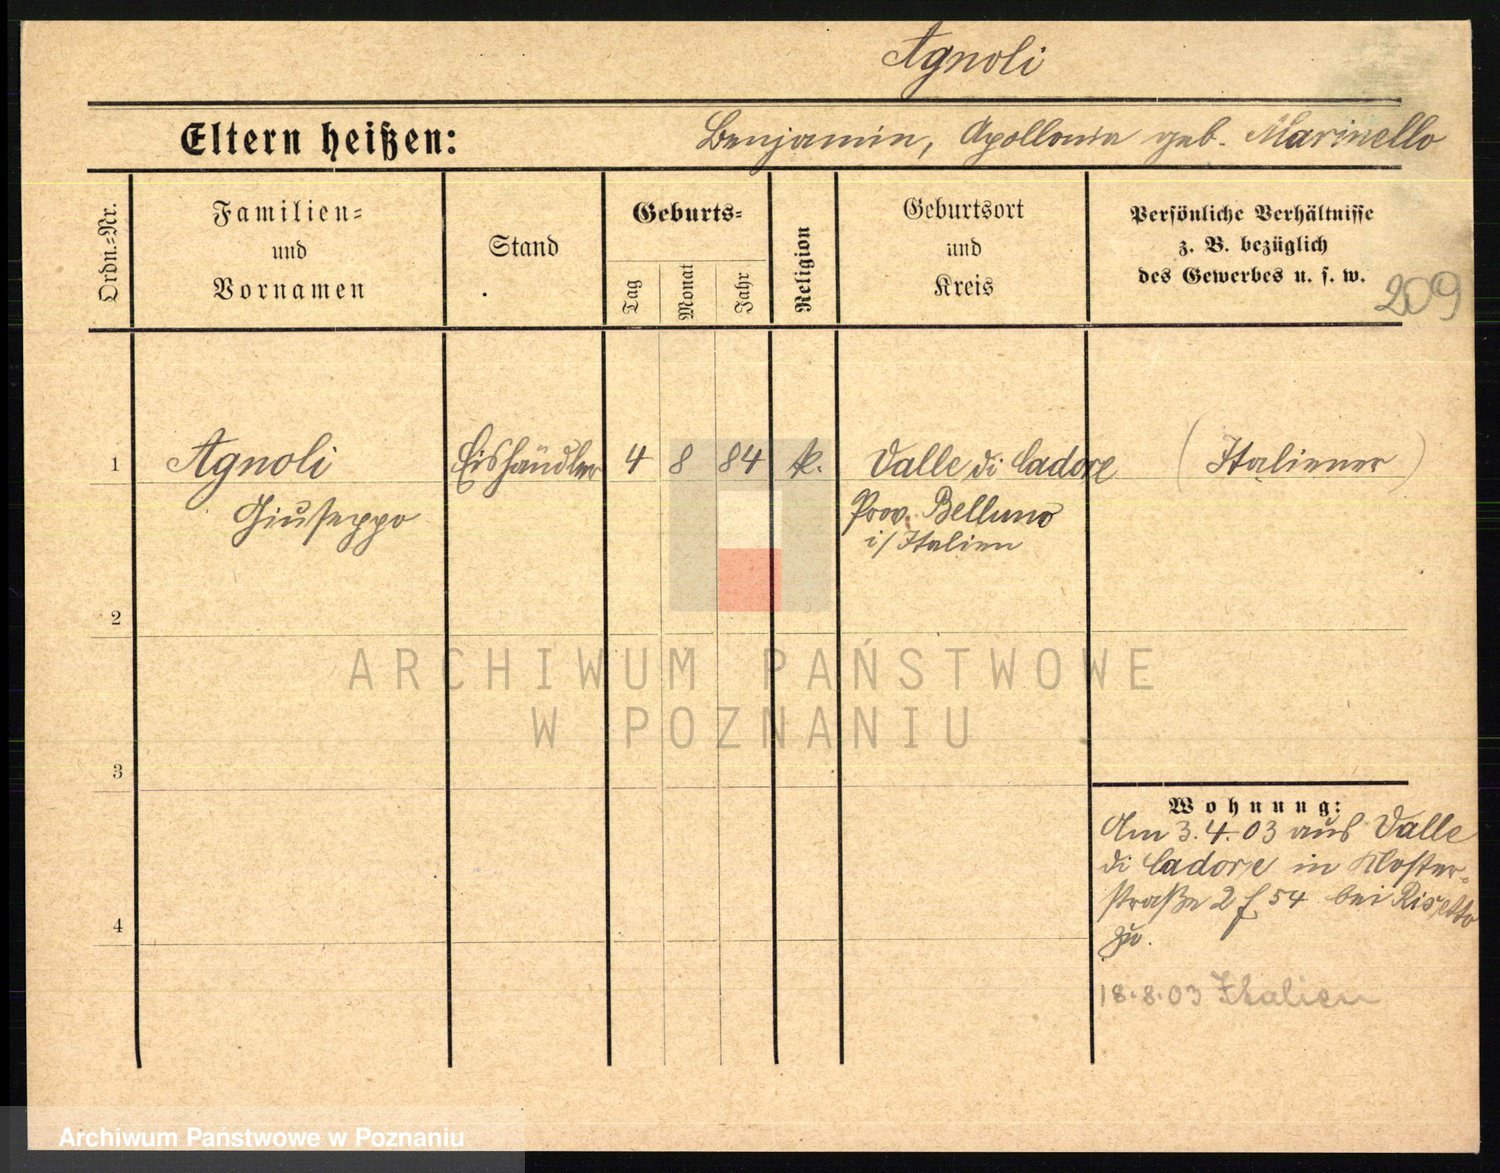 Agnoli
Eltern heißen: Benjamin, Apollonia geb. Marinello
Ordn.=Nr.
Familien=
und
Vornamen
Stand
Geburts=
Tag
Monat
Jahr
Religion
Geburtsort
und
Kreis
Persönliche Verhältnisse
z. B. bezüglich
des Gewerbes u. s. w.
209
1 Agnoli Eishändler 4 8 84 k. Valle di Cadore (Italiener)
Giuseppo Prov. Belluno
i/Italien
2
ARCHIWUM PAŃSTWOWE
W POZNANIU
3
Wohnung:
Am 3.4.03 aus Valle
di Cadore in Kloster=
straße 2 f 54 bei
4
zu.
18.8.03 Italien
Archiwum Państwowe w Poznaniu